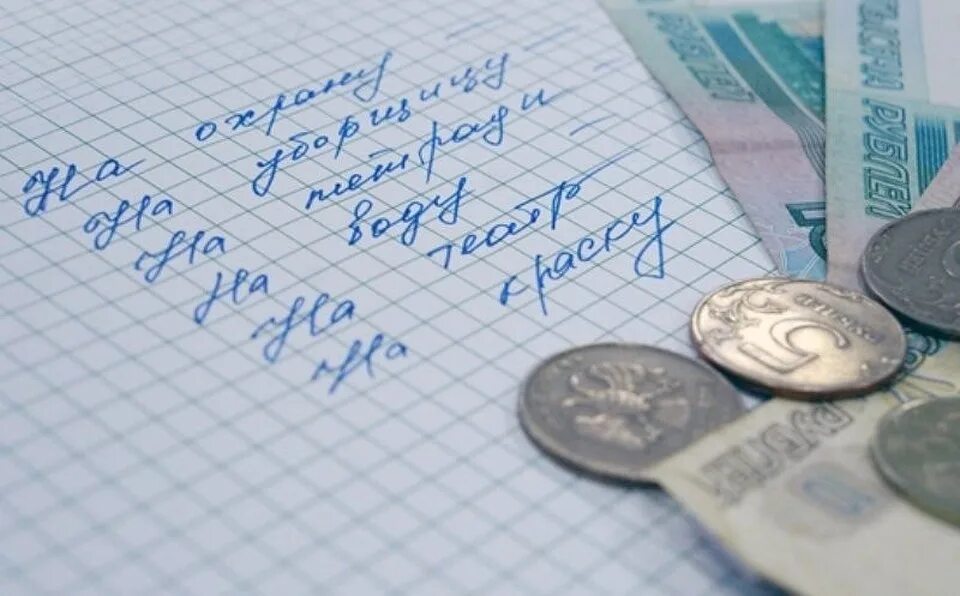 На охрану —
На уборщицу —
На тетради —
На воду —
На театр —
На краску
РУБЛЕЙ
РУБЛЕЙ
5
РУБЛЕЙ
10